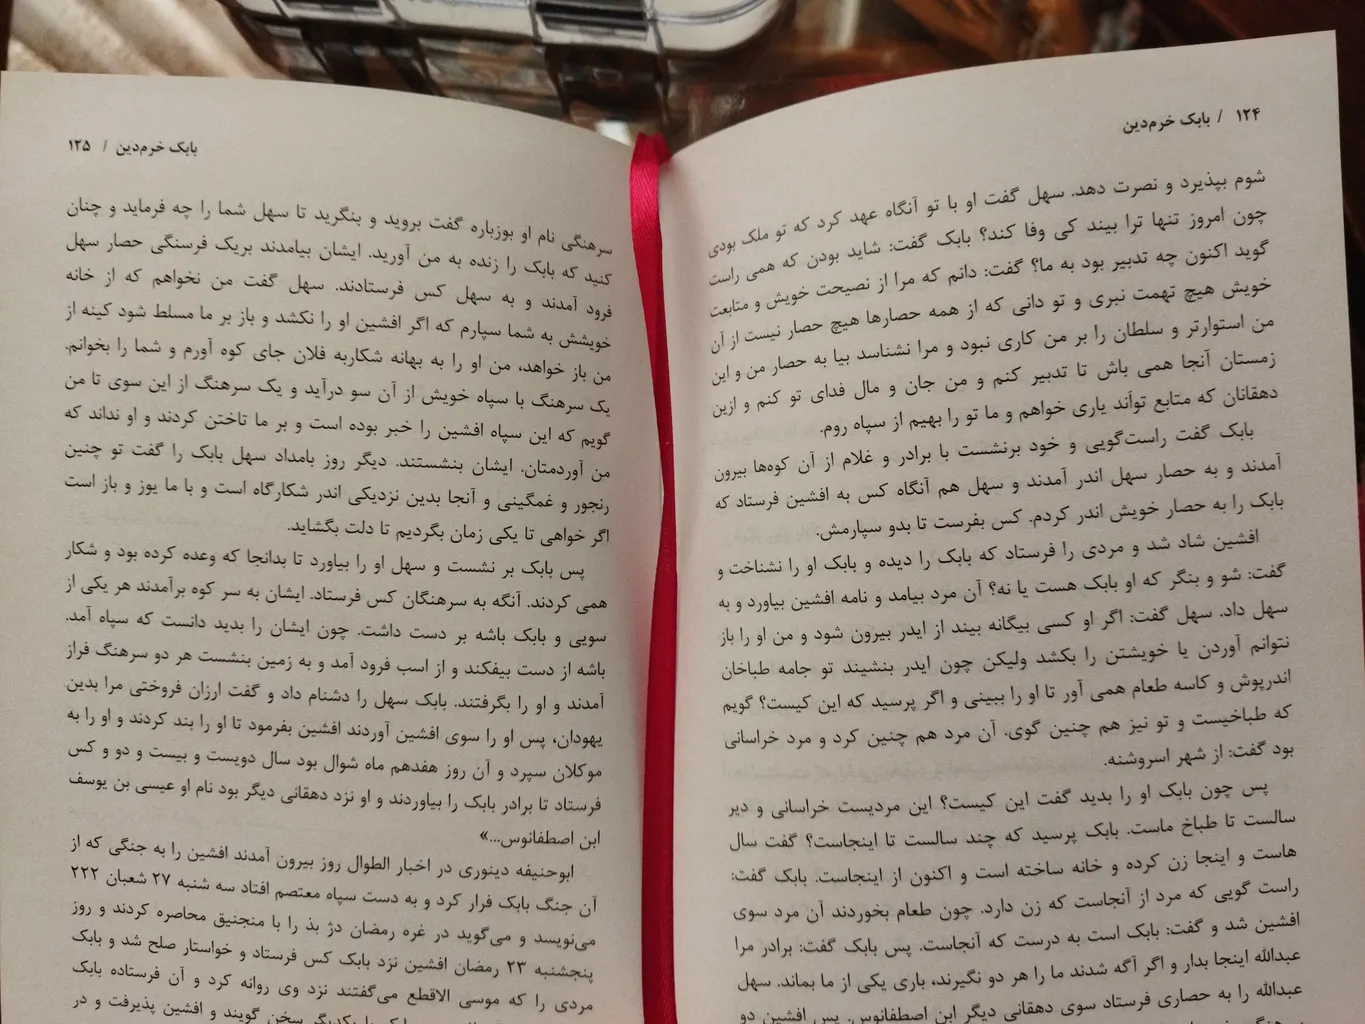 ۱۲۴ / بابک خرم‌دین
شوم بپذیرد و نصرت دهد. سهل گفت او با تو آنگاه عهد کرد که تو ملک بودی
چون امروز تنها ترا بیند کی وفا کند؟ بابک گفت: شاید بودن که همی راست
گوید اکنون چه تدبیر بود به ما؟ گفت: دانم که مرا از نصیحت خویش و متابعت
خویش هیچ تهمت نبری و تو دانی که از همه حصارها هیچ حصار نیست از آن
من استوارتر و سلطان را بر من کاری نبود و مرا نشناسد بیا به حصار من و این
زمستان آنجا همی باش تا تدبیر کنم و من جان و مال فدای تو کنم و ازین
دهقانان که متابع توأند یاری خواهم و ما تو را بهیم از سپاه روم.
بابک گفت راست‌گویی و خود برنشست با برادر و غلام از آن کوه‌ها بیرون
آمدند و به حصار سهل اندر آمدند و سهل هم آنگاه کس به افشین فرستاد که
بابک را به حصار خویش اندر کردم. کس بفرست تا بدو سپارمش.
افشین شاد شد و مردی را فرستاد که بابک را دیده و بابک او را نشناخت و
گفت: شو و بنگر که او بابک هست یا نه؟ آن مرد بیامد و نامه افشین بیاورد و به
سهل داد. سهل گفت: اگر او کسی بیگانه بیند از ایدر بیرون شود و من او را باز
نتوانم آوردن یا خویشتن را بکشد ولیکن چون ایدر بنشیند تو جامه طباخان
اندرپوش و کاسه طعام همی آور تا او را ببینی و اگر پرسید که این کیست؟ گویم
که طباخیست و تو نیز هم چنین گوی. آن مرد هم چنین کرد و مرد خراسانی
بود گفت: از شهر اسروشنه.
پس چون بابک او را بدید گفت این کیست؟ این مردیست خراسانی و دیر
سالست تا طباخ ماست. بابک پرسید که چند سالست تا اینجاست؟ گفت سال
هاست و اینجا زن کرده و خانه ساخته است و اکنون از اینجاست. بابک گفت:
راست گویی که مرد از آنجاست که زن دارد. چون طعام بخوردند آن مرد سوی
افشین شد و گفت: بابک است به درست که آنجاست. پس بابک گفت: برادر مرا
عبدالله اینجا بدار و اگر آگه شدند ما را هر دو نگیرند، باری یکی از ما بماند. سهل
عبدالله را به حصاری فرستاد سوی دهقانی دیگر ابن اصطفانوس. پس افشین دو
بابک خرم‌دین / ۱۲۵
سرهنگی نام او بوزباره گفت بروید و بنگرید تا سهل شما را چه فرماید و چنان
کنید که بابک را زنده به من آورید. ایشان بیامدند بریک فرسنگی حصار سهل
فرود آمدند و به سهل کس فرستادند. سهل گفت من نخواهم که از خانه
خویشش به شما سپارم که اگر افشین او را نکشد و باز بر ما مسلط شود کینه از
من باز خواهد، من او را به بهانه شکاربه فلان جای کوه آورم و شما را بخوانم.
یک سرهنگ با سپاه خویش از آن سو درآید و یک سرهنگ از این سوی تا من
گویم که این سپاه افشین را خبر بوده است و بر ما تاختن کردند و او نداند که
من آوردمتان. ایشان بنشستند. دیگر روز بامداد سهل بابک را گفت تو چنین
رنجور و غمگینی و آنجا بدین نزدیکی اندر شکارگاه است و با ما یوز و باز است
اگر خواهی تا یکی زمان بگردیم تا دلت بگشاید.
پس بابک بر نشست و سهل او را بیاورد تا بدانجا که وعده کرده بود و شکار
همی کردند. آنگه به سرهنگان کس فرستاد. ایشان به سر کوه برآمدند هر یکی از
سویی و بابک باشه بر دست داشت. چون ایشان را بدید دانست که سپاه آمد.
باشه از دست بیفکند و از اسب فرود آمد و به زمین بنشست هر دو سرهنگ فراز
آمدند و او را بگرفتند. بابک سهل را دشنام داد و گفت ارزان فروختی مرا بدین
یهودان، پس او را سوی افشین آوردند افشین بفرمود تا او را بند کردند و او را به
موکلان سپرد و آن روز هفدهم ماه شوال بود سال دویست و بیست و دو و کس
فرستاد تا برادر بابک را بیاوردند و او نزد دهقانی دیگر بود نام او عیسی بن یوسف
ابن اصطفانوس...»
ابوحنیفه دینوری در اخبار الطوال روز بیرون آمدند افشین را به جنگی که از
آن جنگ بابک فرار کرد و به دست سپاه معتصم افتاد سه شنبه ۲۷ شعبان ۲۲۲
می‌نویسد و می‌گوید در غره رمضان دژ بذ را با منجنیق محاصره کردند و روز
پنجشنبه ۲۳ رمضان افشین نزد بابک کس فرستاد و خواستار صلح شد و بابک
مردی را که موسی الاقطع می‌گفتند نزد وی روانه کرد و آن فرستاده بابک
سخن گویند و افشین پذیرفت و در